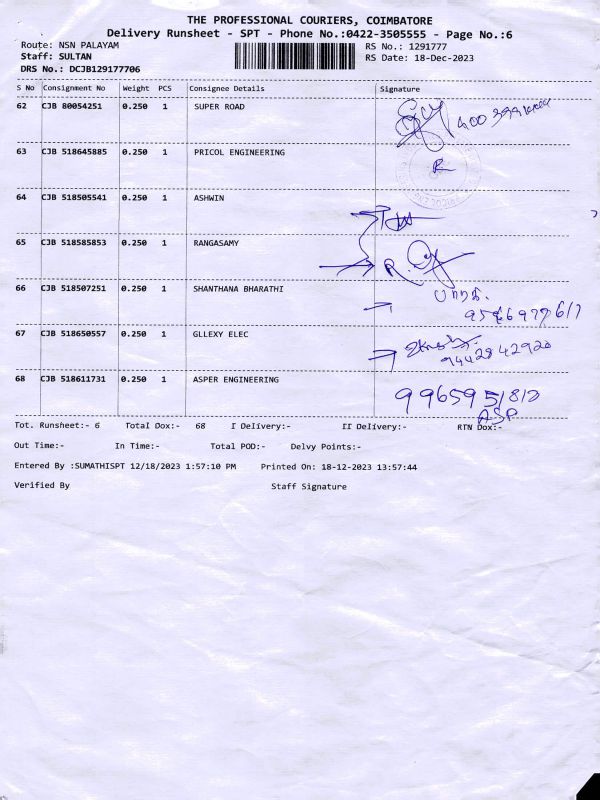 THE PROFESSIONAL COURIERS, COIMBATORE
Delivery Runsheet - SPT - Phone No.:0422-3505555 - Page No.:6
Route: NSN PALAYAM RS No.: 1291777
Staff: SULTAN RS Date: 18-Dec-2023
DRS No.: DCJB129177706
S No Consignment No Weight PCS Consignee Details Signature
62 CJB 80054251 0.250 1 SUPER ROAD
63 CJB 518645885 0.250 1 PRICOL ENGINEERING
64 CJB 518505541 0.250 1 ASHWIN
65 CJB 518585853 0.250 1 RANGASAMY
66 CJB 518507251 0.250 1 SHANTHANA BHARATHI
67 CJB 518650557 0.250 1 GLLEXY ELEC
9442842920
68 CJB 518611731 0.250 1 ASPER ENGINEERING
ASP
Tot. Runsheet:- 6 Total Dox:- 68 I Delivery:- II Delivery:- RTN Dox:-
Out Time:- In Time:- Total POD:- Delvy Points:-
Entered By :SUMATHISPT 12/18/2023 1:57:10 PM Printed On: 18-12-2023 13:57:44
Verified By Staff Signature